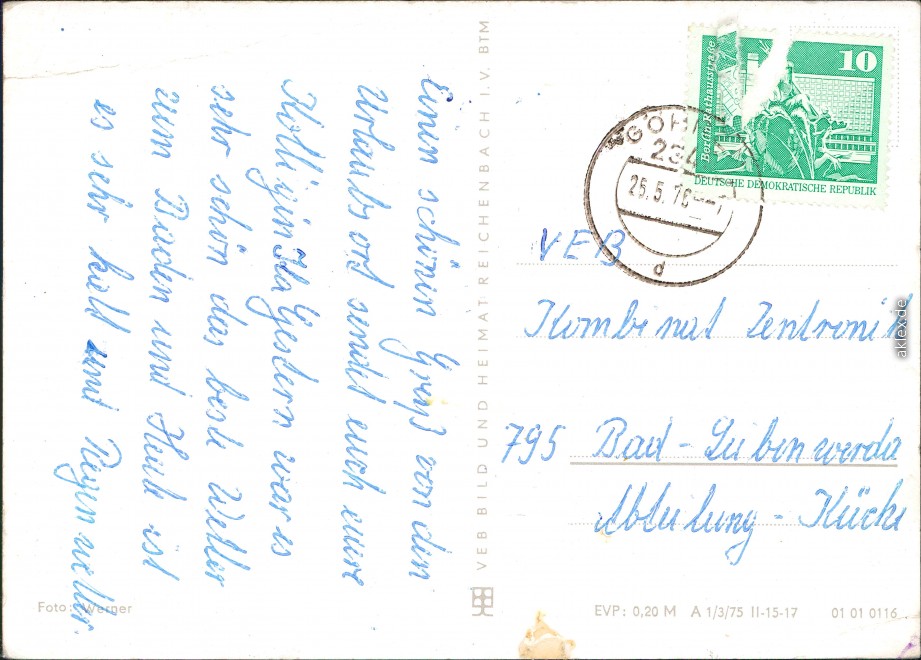 Einen schönen Gruß von den
Urlaubs ord sendet euch eure
Kollegin Ilg Gestern war es
sehr schön das beste Wetter
zum Baden und Heute ist
es sehr kalt und Regenwetter.
Foto: Werner
VEB BILD UND HEIMAT REICHENBACH I.V. BTM
10
Berlin-Rathausstraße
DEUTSCHE DEMOKRATISCHE REPUBLIK
GÖHR
234
25.5.76
d
VEB
Kombinat Zentronik
795 Bad-Liebenwerda
Abteilung-Küche
EVP: 0,20 M A 1/3/75 II-15-17 01 01 0116
aklex.de